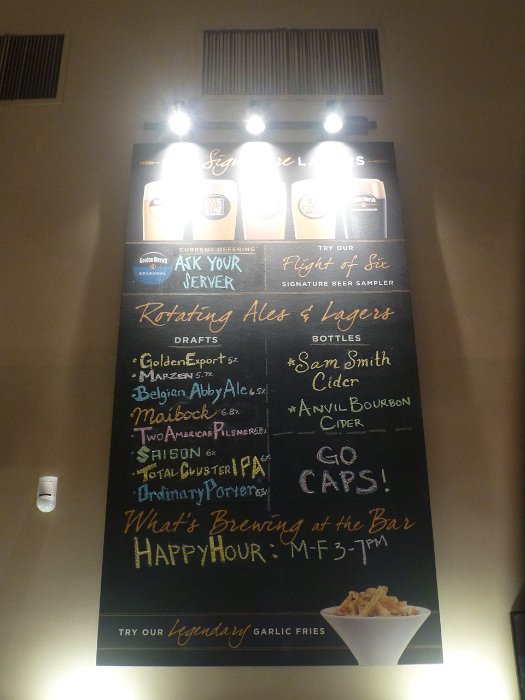 Signature LAGERS
CURRENT OFFERING
Gordon Biersch
SEASONAL
ASK YOUR
SERVER
TRY OUR
Flight of Six
SIGNATURE BEER SAMPLER
Rotating Ales & Lagers
DRAFTS
• Golden Export 5%
• MARZEN 5.7%
• Belgian Abby Ale 6.5%
Maibock 6.8%
• TWO AMERICAS PILSNER 6.8%
• SAISON 6%
• TOTAL CLUSTER IPA 6%
• Ordinary Porter
BOTTLES
*Sam Smith
Cider
*ANVIL BOURBON
CIDER
GO
CAPS!
What's Brewing at the Bar
HAPPY HOUR: M-F 3-7PM
TRY OUR Legendary GARLIC FRIES